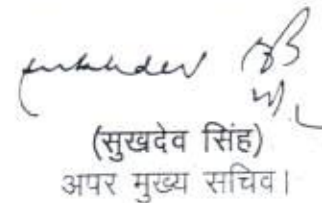 (सुखदेव सिंह)
अपर मुख्य सचिव।